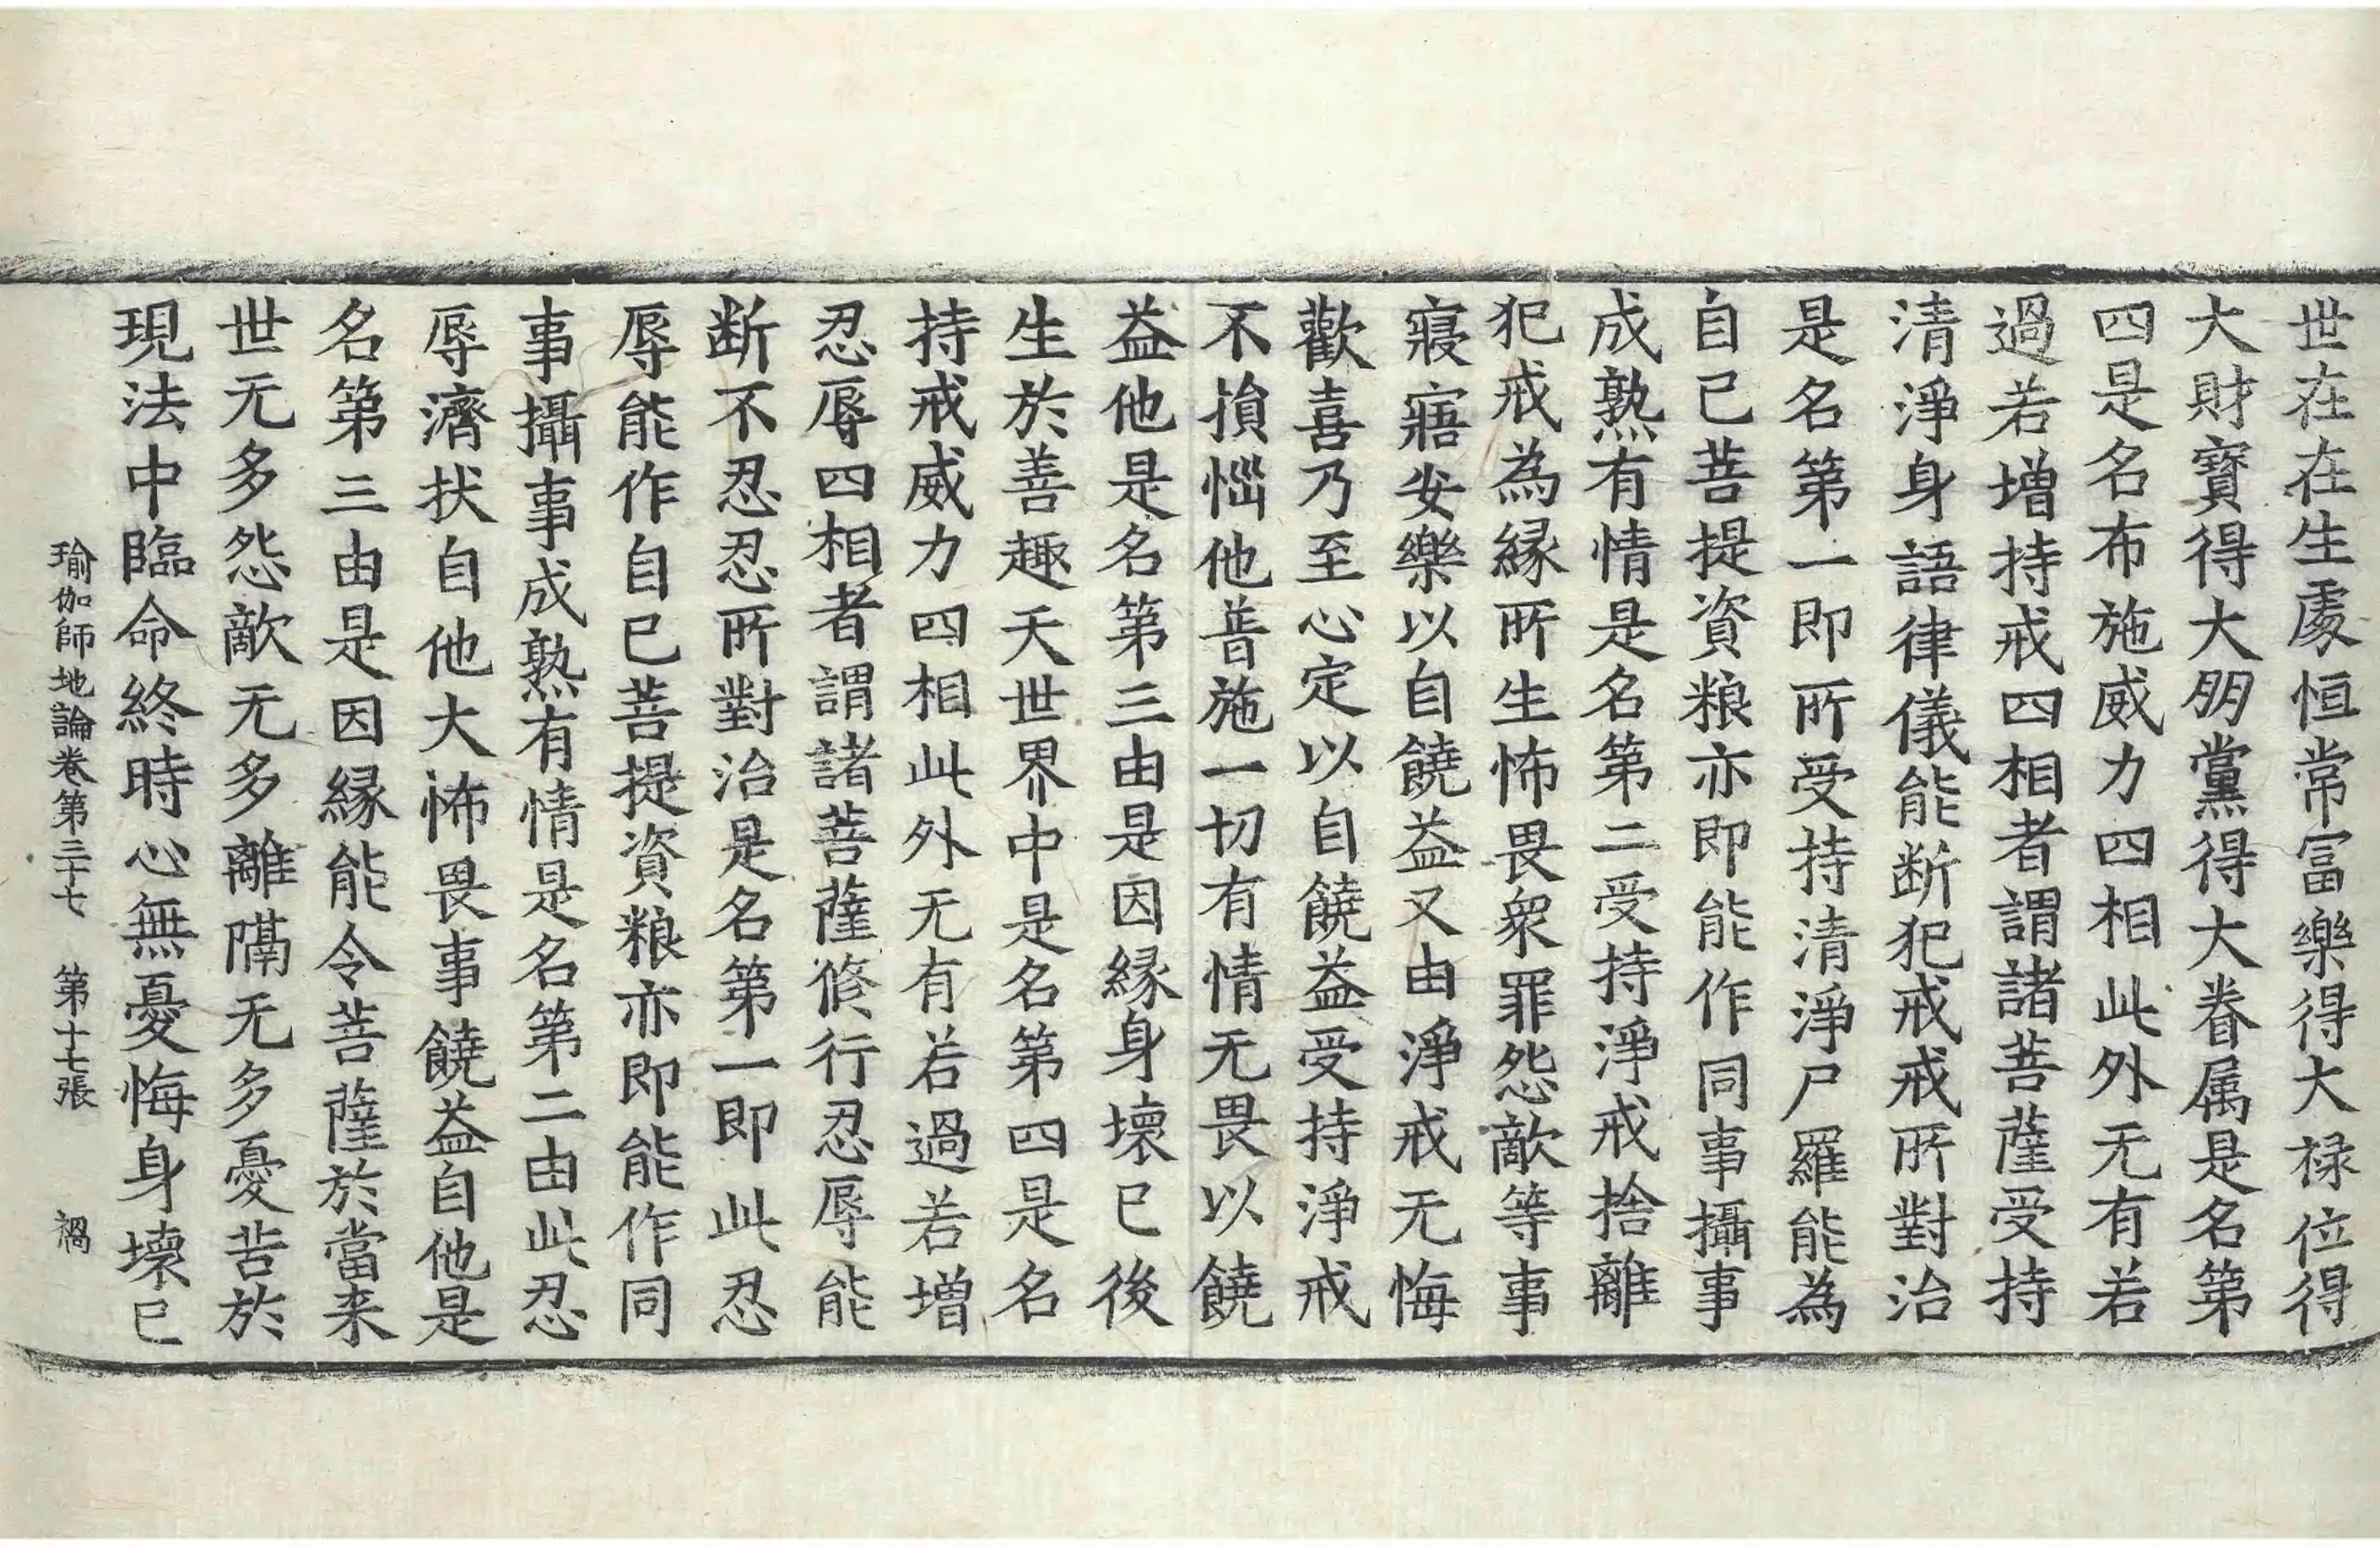 世在在生處恒常富樂得大禄位得
大財寶得大朋黨得大眷属是名第
四是名布施威力四相此外无有若
過若增持戒四相者謂諸菩薩受持
清淨身語律儀能断犯戒戒所對治
是名第一即所受持清淨尸羅能為
自己菩提資粮亦即能作同事攝事
成熟有情是名第二受持淨戒捨離
犯戒為縁所生怖畏衆罪怨敵等事
寢寤安樂以自饒益又由淨戒无悔
歡喜乃至心定以自饒益受持淨戒
不損惱他普施一切有情无畏以饒
益他是名第三由是因縁身壞已後
生於善趣天世界中是名第四是名
持戒威力四相此外无有若過若增
忍辱四相者謂諸菩薩修行忍辱能
断不忍忍所對治是名第一即此忍
辱能作自己菩提資粮亦即能作同
事攝事成熟有情是名第二由此忍
辱濟拔自他大怖畏事饒益自他是
名第三由是因縁能令菩薩於當来
世无多怨敵无多離隔无多憂苦於
現法中臨命終時心無憂悔身壞已
瑜伽師地論卷第三十七 第十七張 禍